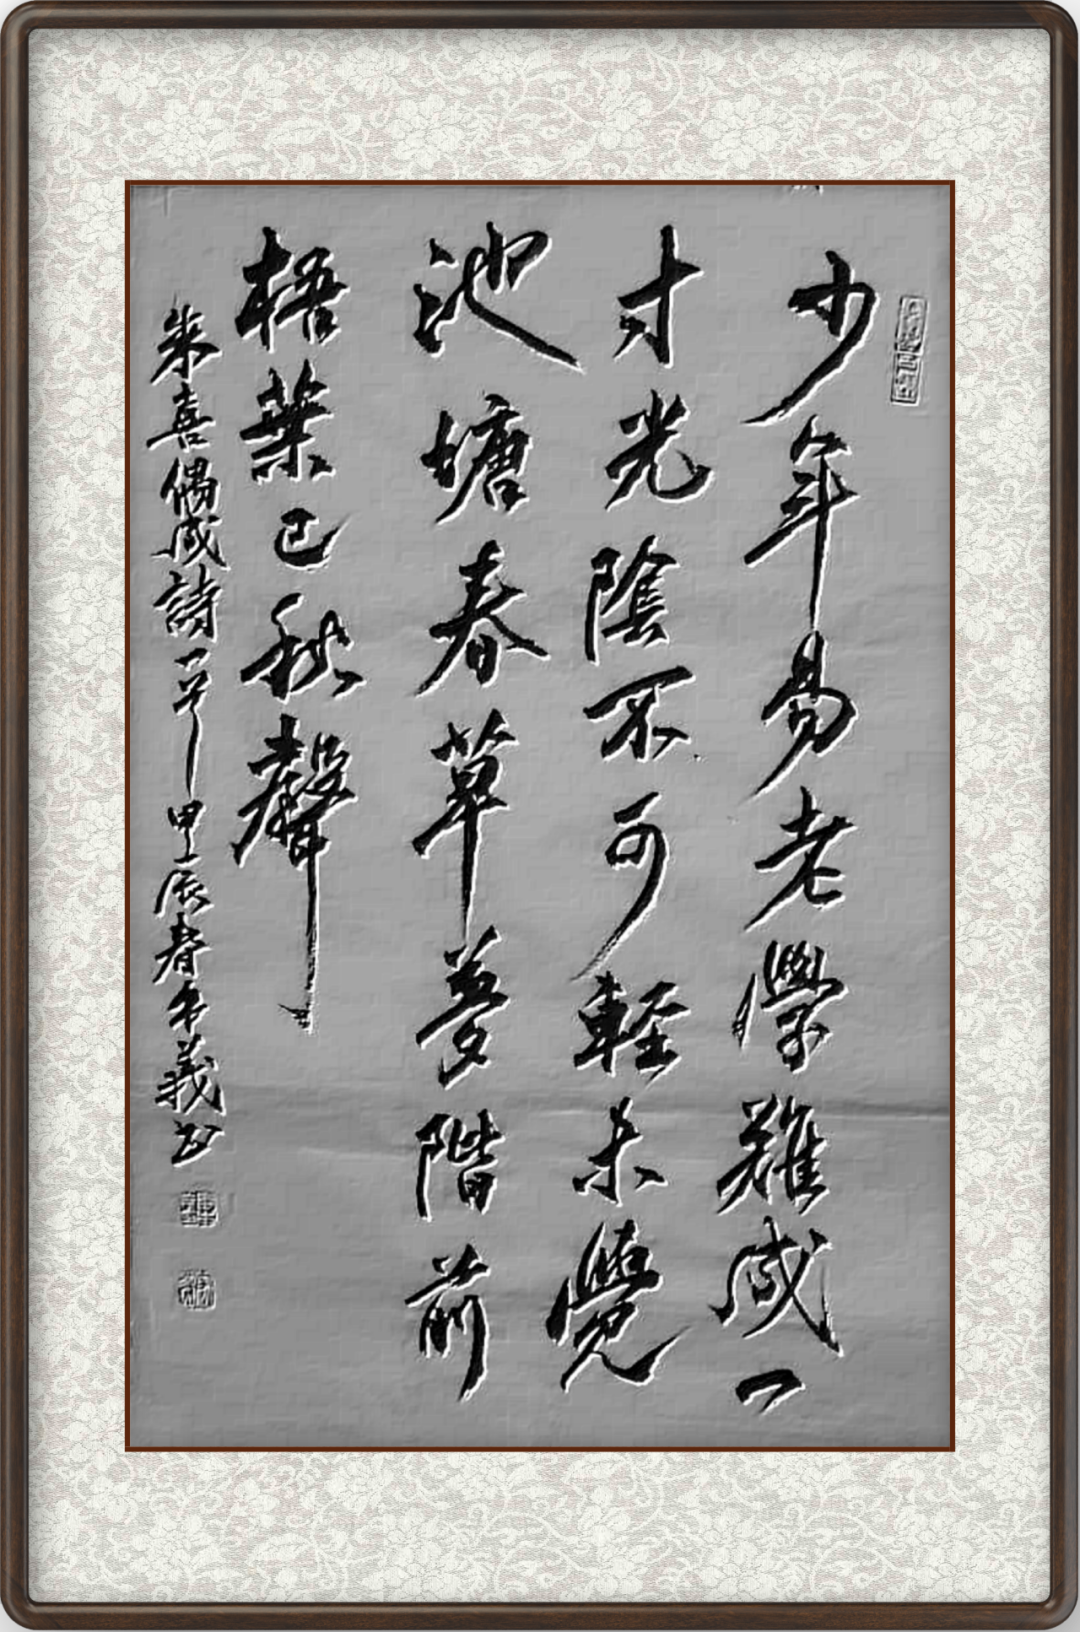 少年易老學難成一
寸光陰不可輕未覺
池塘春草夢階前
梧葉已秋聲
朱喜偶成詩一首甲辰春年義书